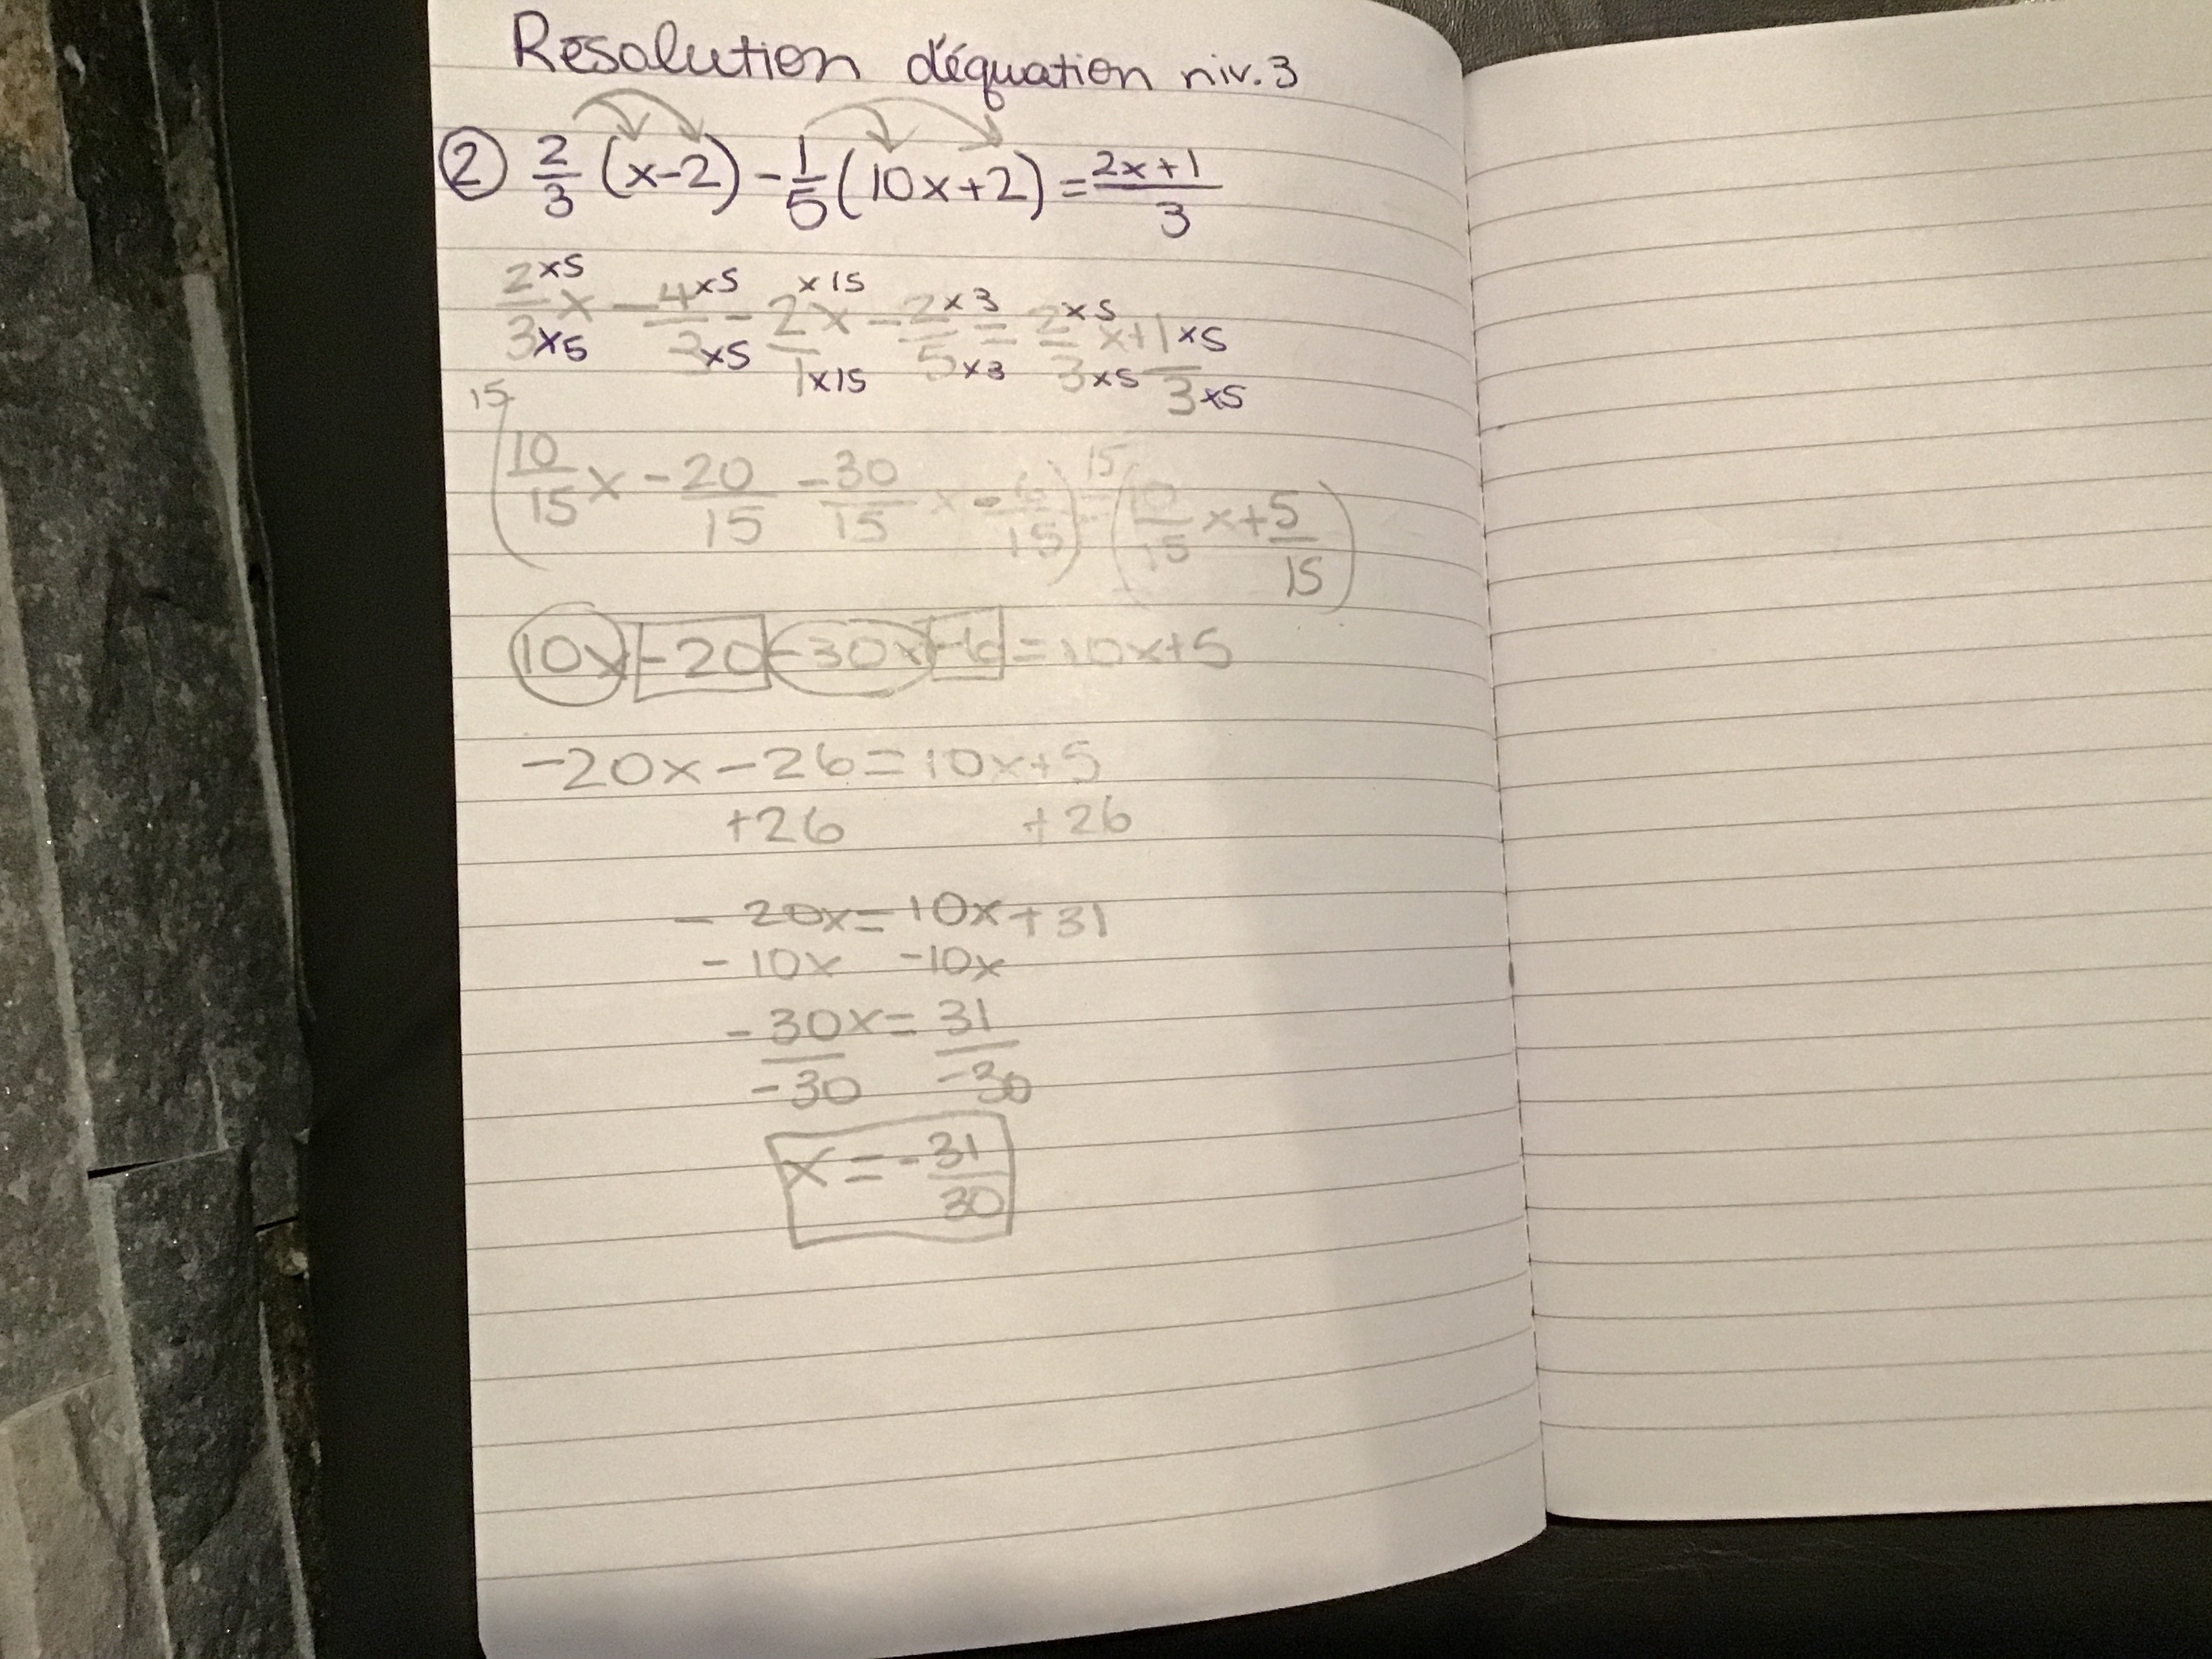 Resolution d'équation niv.3
② 2/3 (x-2) - 1/5 (10x+2) = 2x+1/3
2x5/3x5 x - 4x5/3x5 - 2x15/1x15 x - 2x3/5x3 = 2x5/3x5 x + 1x5/3x5
15(10/15 x - 20/15 - 30/15 x - 6/15) = 15(10/15 x + 5/15)
10x -20 -30x -6 = 10x+5
-20x - 26 = 10x+5
+26 +26
- 20x = 10x + 31
- 10x -10x
- 30x = 31
-30 -30
x = - 31/30